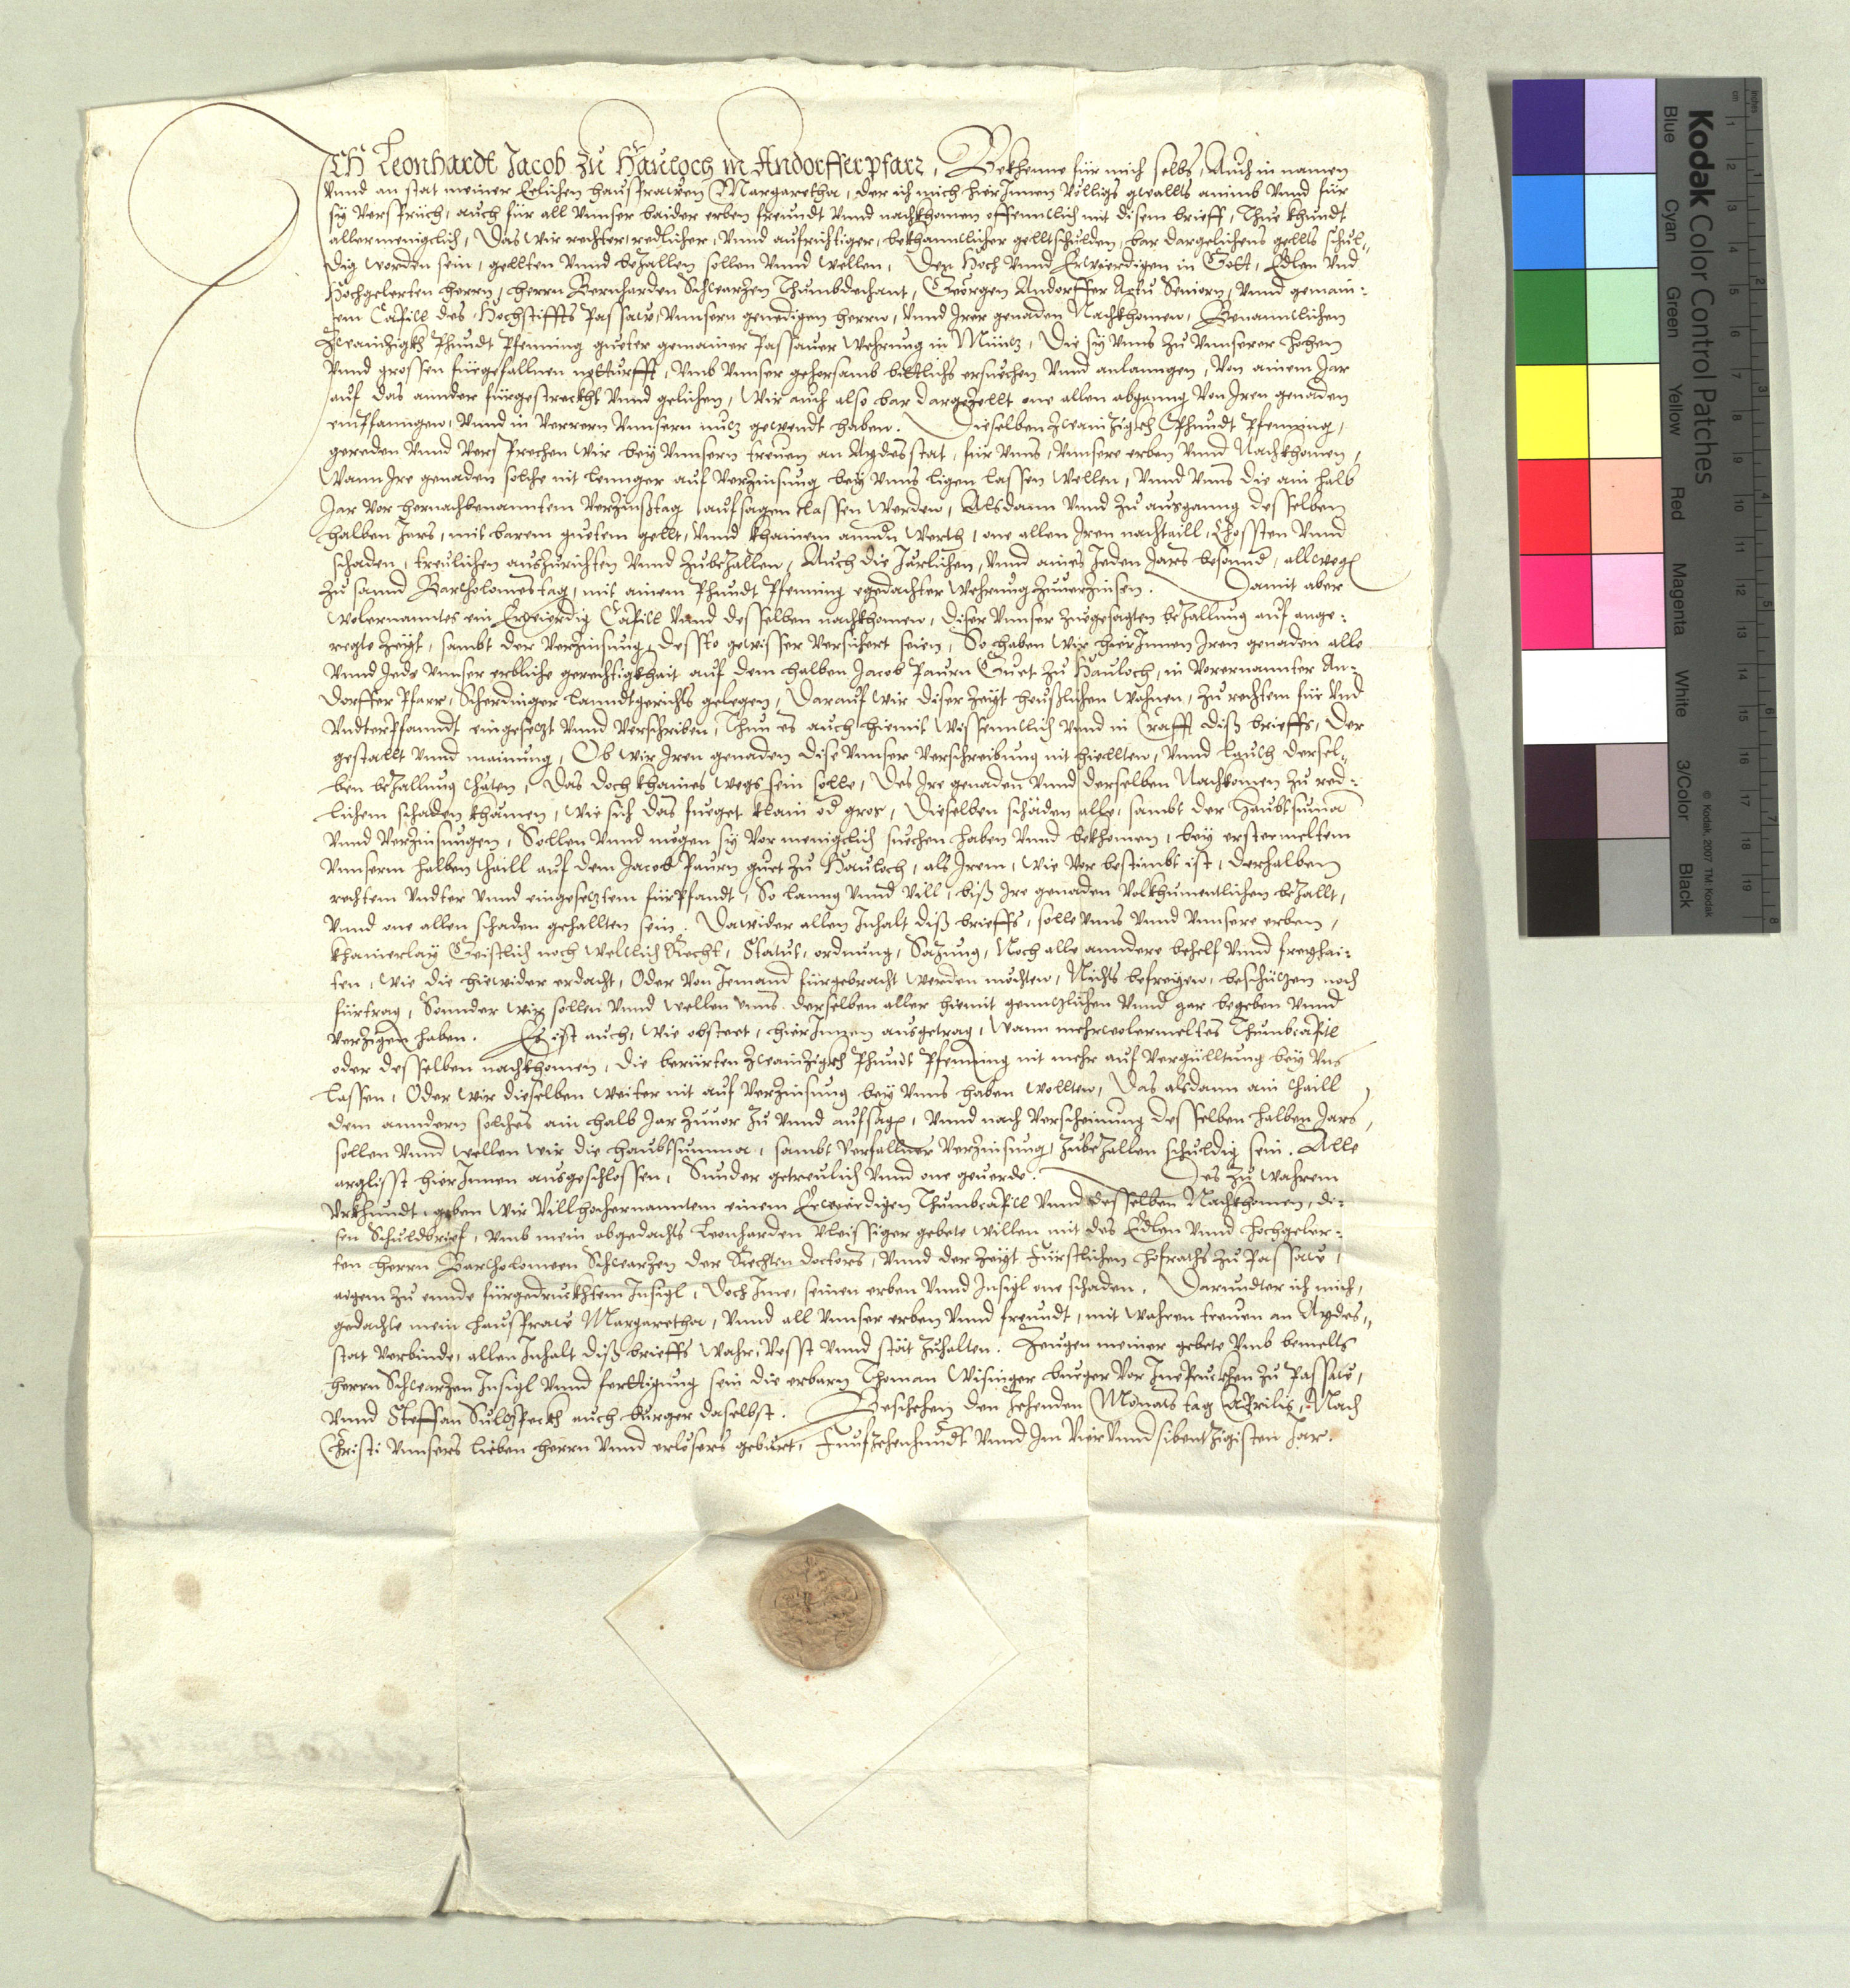 ICH Leonhardt Jacob zu Hauloch in Andorffer pfarr, Bekhenne für mich selbs, Auch in namen
vnnd an stat meiner Eelichen hausfrawen Margaretha, der ich mich hierInnen völligs gwallts annimb vnnd für
sÿ versprich, auch für all vnnser baider erben freundt vnnd nachkhomen offenntlich mit disem brieff, Thue khundt
allermenigclich, Das wir rechter, redlicher, vnnd aufrichtiger, bekhanntlicher gelltschulden, bar dargelichens gellts schul„
dig worden sein, gellten vnnd bezallen sollen vnnd wellen, Den Hoch vnnd Erwierdigen in Gott, Edlen vnd
Hochgelerten herrn, herrn Bernharden Schwarzen Thumbdechant, Georgen Andorffer Seniorn, vnnd gemain:
em Capitl des Hochstiffts Passaw, vnnsern genedigen herrn, vnnd Irer genaden Nachkhomen, Benanntlichen
Zwainzigkh Phundt Pfenning gueter gemainer Passauer Wehrung in Münz, Die sÿ vnns zu vnnserer hohen
vnnd grossen fürgefallnen notturfft, vmb vnnser gehorsamb bittlichs ersuechen vnnd anlanngen, von ainem Jar
auf das annder fürgestreckht vnnd gelichen, Wir auch also bar dargezellt one allen abganng von Iren genaden
emphanngen, vnnd in verrern vnnsern nutz gewendt haben. Dieselben Zwainzigkh Phundt Pfenning,
gereden vnnd versprechen wir bey vnnsern treuen an Aydesstat, für vnns, vnnsere erben vnnd Nachkhomen,
Wann Ire genaden solche nit lennger auf verzinsung bey vnns ligen lassen wellen, vnnd vnns die ain halb
Jar vor hernachbenanntem Verzinßtag aufsagen lassen werden, Alsdann vnnd zu ausganng desselben
halben Jars, mit barem guetem gellt, vnnd khainem annder werth, one allen Iren nachtaill, Chossten vnnd
schaden, treulichen auszurichten vnnd zubezallen, Auch die Järlichen, vnnd aines Jeden Jars besonnder, allweg
zu sannd Bartholomestag, mit ainem Phundt Pfenning egedachter Wehrung zuuerzinsen. Damit aber
wolernanntes ein Erwierdig Capitl vnnd desselben nachkhomen, diser vnnser zuegesagten bezallung auf ange:
regte zeyt, sambt der Verzinsung, dessto gewisser versichert seien, So haben wir hierInnen Iren genaden alle
vnnd Jede vnnser erbliche gerechtigkhait auf dem halben Jacob Paurn Guet zu Hauloch, in vorernannter An:
dorffer Pfarr, Scherdinger lanndtgerichts gelegen, Darauf wir diser zeyt heußlichen wohnen, zu rechtem für vnd
vndterPfanndt eingesetzt vnnd verschriben, Thun es auch hiemit wissenntlich vnnd in Crafft diß brieffs, Der
gestallt vnnd mainung, Ob wir Iren genaden dise vnnser verschreibung nit hiellten, vnnd lauth dersel„
ben bezallung thäten, Das doch khaines wegs sein solle, Des Ire genaden vnnd derselben Nachkhomen zu red:
lichem schaden khämen, Wie sich das füeget klain oder gros, Dieselben schäden alle, sambt der haubtsuma
vnnd Verzinsungen, Sollen vnnd mögen sÿ vor menigclich suechen haben vnnd bekhomen, bey ersterneltem
vnnserm halben thaill auf dem Jacob Paurn guet zu Hauloch, als Irem, wie vor bestimbt ist, derhalben
rechtem vndter vnnd eingesetztem fürpfandt, So lanng vnnd vill, biß Ire genaden volkhumentlichen bezallt,
vnnd one allen schaden gehallten sein. Dawider allen Inhalt diß brieffs, solle vnns vnnd vnnsere erben,
khainerlay Geistlich noch Weltlich Recht, Statut, ordnung, Satzung, Noch alle anndere behelf vnnd freyhai:
ten, wie die hiewider erdacht, Oder von Jemand fürgebracht werden möchten, Nichts befreyen, beschützen noch
fürtrag, Sonnder wir sollen vnnd wellen vnns derselben aller hiemit genntzlichen vnnd gar begeben vnnd
verzigen haben. Es ist auch, wie obsteet, hierInnen ausgetrag, Wann mehrwolermeltes Thumbcapitl
oder desselben nachkhomen, die berürten Zwainzigkh Phundt Pfenning nit mehr auf vergülltung bey vns
lassen, Oder wir dieselben weiter nit auf Verzinsung bey vnns haben wollten, Das alsdann ain thaill
dem anndern solches ain halb Jar zuuor zu vnnd aufsag, vnnd nach verscheinung desselben halben Jars,
sollen vnnd wellen wir die haubtsumma, sambt verfallner Verzinsung, zubezallen schuldig sein. Alle
arglisst hierInnen ausgeschlossen, Sunder getreulich vnnd one geuerde. Des zu wahrem
Vrkhundt geben wir villhochernanntem einem Erwierdigen Thumbcapitl vnnd desselben Nachkhomen, di:
sen Schuldbrief, vmb mein obgedachts Leonharden vleissiger gebete willen mit des Edlen vnnd hochgeler:
ten herrn Bartholomeen Schwarzen der Rechten Doctors, vnnd der zeyt Fürstlichen hofraths zu Passaw,
aigem zu ennde fürgedruckhtem Insigl, doch Ime, seinen erben vnnd Insigl one schaden. Darundter ich mich,
gedachte mein hausfraw Margaretha, vnnd all vnnser erben vnnd freundt, mit wahren treuen an Aydes„
stat verbinde, allen Inhalt diß brieffs wahr, vesst vnnd stät zuhalten. Zeugen meiner gebete vmb bemelts
herrn Schwarzen Insigl vnnd ferttigung sein die erbarn Thoman Wisinger burger vor Inpruckhen zu Passaw,
vnnd Steffan Sulzpeckh auch burger daselbst. Beschehen den zehenden Monats tag Aprilis, Nach
Christi vnnsers lieben herrn vnnd erlösers geburt, Funfzehenhundt vnnd Im Vier vnnd sibentzigisten Jar.